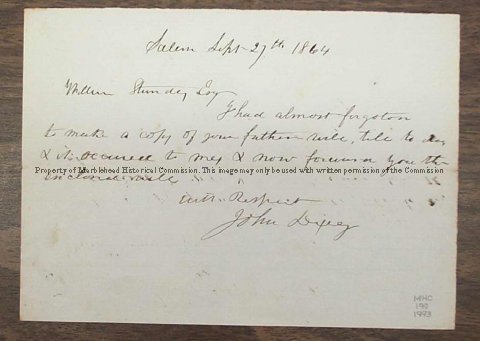 Salem Sept 27th 1864
Esq
I had almost forgoton
to make a copy of your fathers will, till to day
& it occured to me, & now forward you the
Property of Marblehead Historical Commission. This image may only be used with written permission of the Commission
inclosed will
with Respect
John Dixey
MHC
190
1993